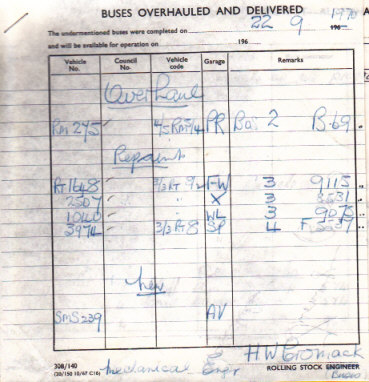 BUSES OVERHAULED AND DELIVERED
The undermentioned buses were completed on 22 9 1970 196
and will be available for operation on 196
Vehicle No. Council No. Vehicle code Garage Remarks
Overhaul
RM 275 PR 2 B.69
Repaint
RT 1648 FW 3 9115
2507 X 3
1040 WL 3 9075
3974 3/3 RT 8 SP 4 F
New
SMS 239 AV
308/140
Mechanical Engr
ROLLING STOCK ENGINEER
Buses